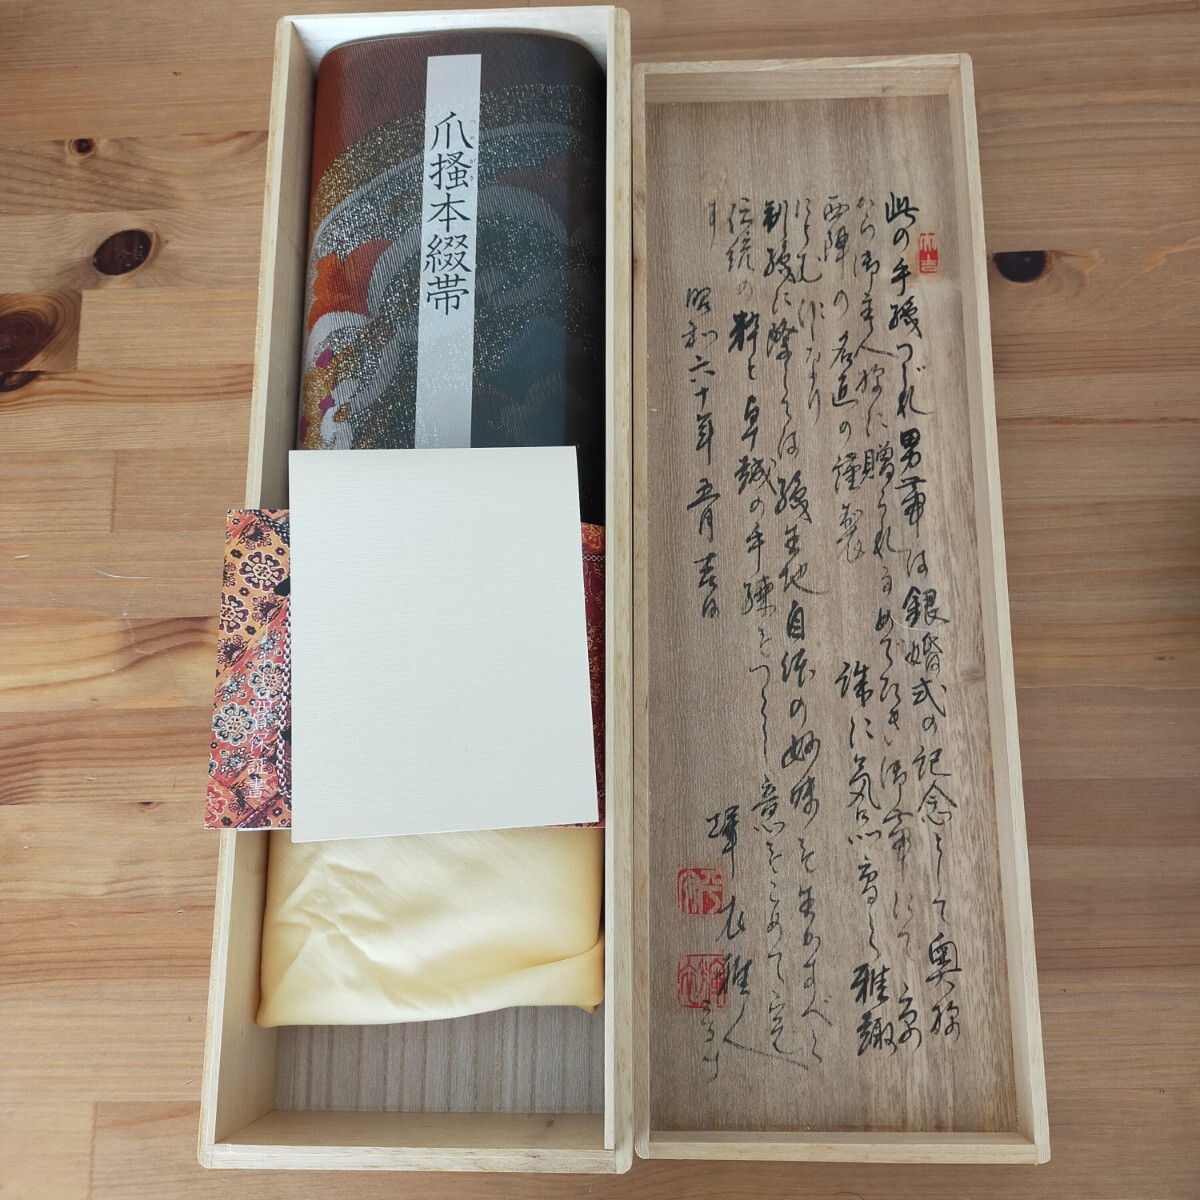 爪掻本綴帯
つめがき
品質保証書
此の手織つづれ男帯は銀婚式の記念として奥様
から御主人様に贈られるめでたき御帯にて 京
西陣の名匠の謹製 誠に気品高く雅趣
にとむ作なり
制織に際しては織生地自体の妙味を生かすべく
伝統の粋と卓越の手練をつくし意をこめて完
す
昭和六十年五月吉日